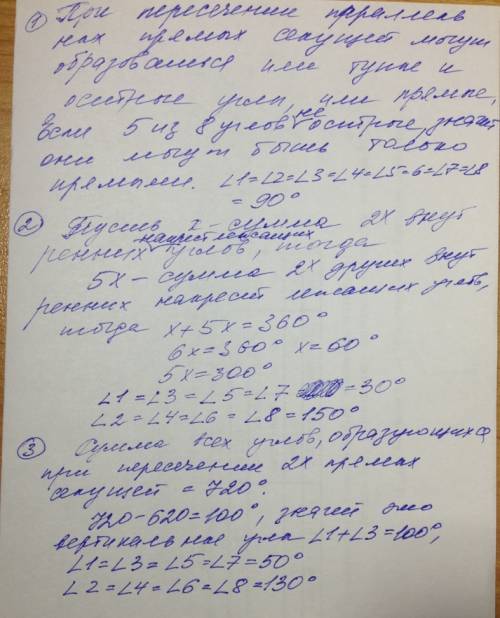 ① При пересечении параллель
ных прямых секущей могут
образоваться или тупые и
острые углы, или прямые,
Если 5 из 8 углов не острые, значит
они могут быть только
прямыми. ∠1=∠2=∠3=∠4=∠5=6=∠7=∠8
= 90°
② Пусть x - сумма 2х внут
ренних накрест лежащих углов, тогда
5x - сумма 2х других внут
ренних накрест лежащих углов,
тогда x + 5x = 360°
6x = 360° x = 60°
5x = 300°
∠1 = ∠3 = ∠5 = ∠7 = 30°
∠2 = ∠4 = ∠6 = ∠8 = 150°
③ Сумма всех углов, образующихся
при пересечении 2х прямых
секущей = 720°.
720 - 620 = 100°, значит это
вертикальные угла ∠1 + ∠3 = 100°,
∠1 = ∠3 = ∠5 = ∠7 = 50°
∠2 = ∠4 = ∠6 = ∠8 = 130°